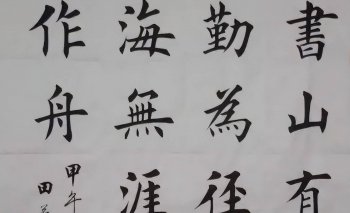 書山有
勤為径
海無涯
作舟
甲午
田